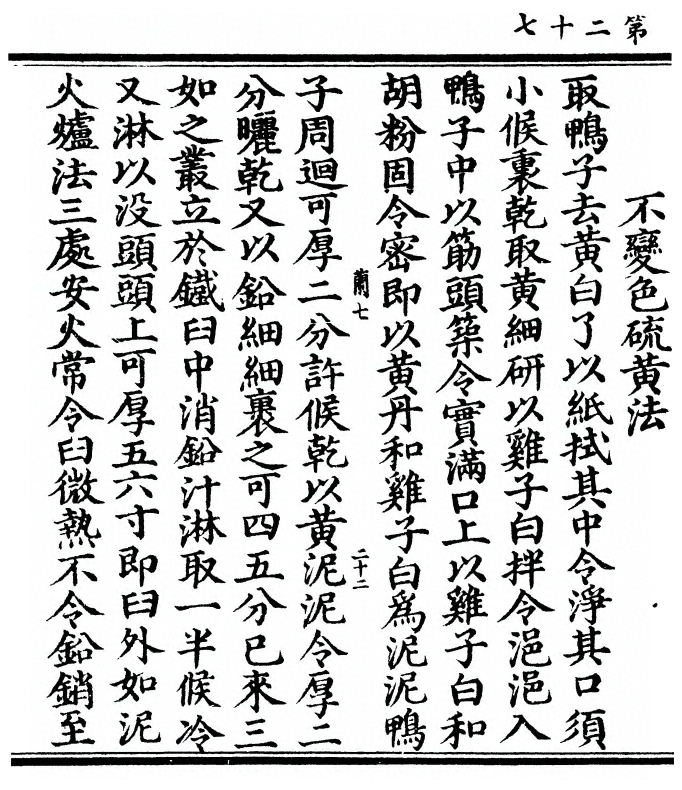 第二十七
不變色硫黃法
取鴨子去黃白了以紙拭其中令淨其口須
小候裏乾取黃細研以雞子白拌令浥浥入
鴨子中以筯頭築令實滿口上以雞子白和
胡粉固令密即以黃丹和雞子白爲泥泥鴨
蘭七
二十二
子周迴可厚二分許候乾以黃泥泥令厚二
分曬乾又以鉛細細裹之可四五分已來三
如之叢立於鐵臼中消鉛汁淋取一半候冷
又淋以没頭頭上可厚五六寸即臼外如泥
火爐法三處安火常令臼微熱不令鉛銷至